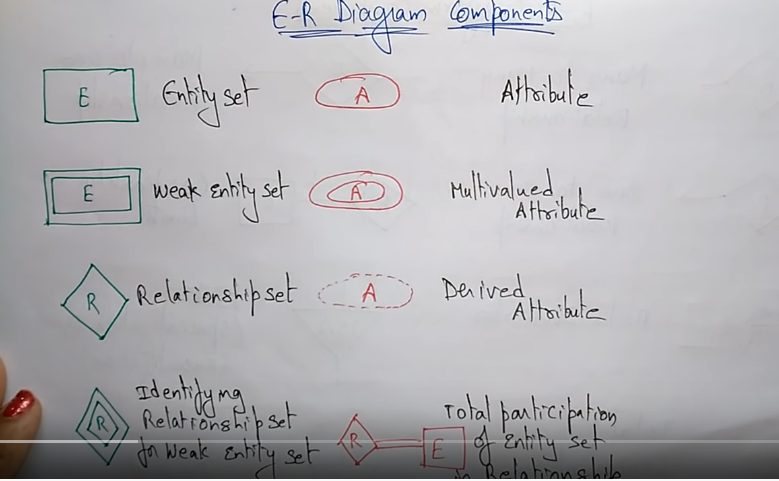 E-R Diagram Components
E Entity set A Attribute
E Weak Entity set A Multivalued
Attribute
R Relationship set A Derived
Attribute
Identifying
R Relationship set
for Weak Entity set
R E Total participation
of Entity set
in Relationship